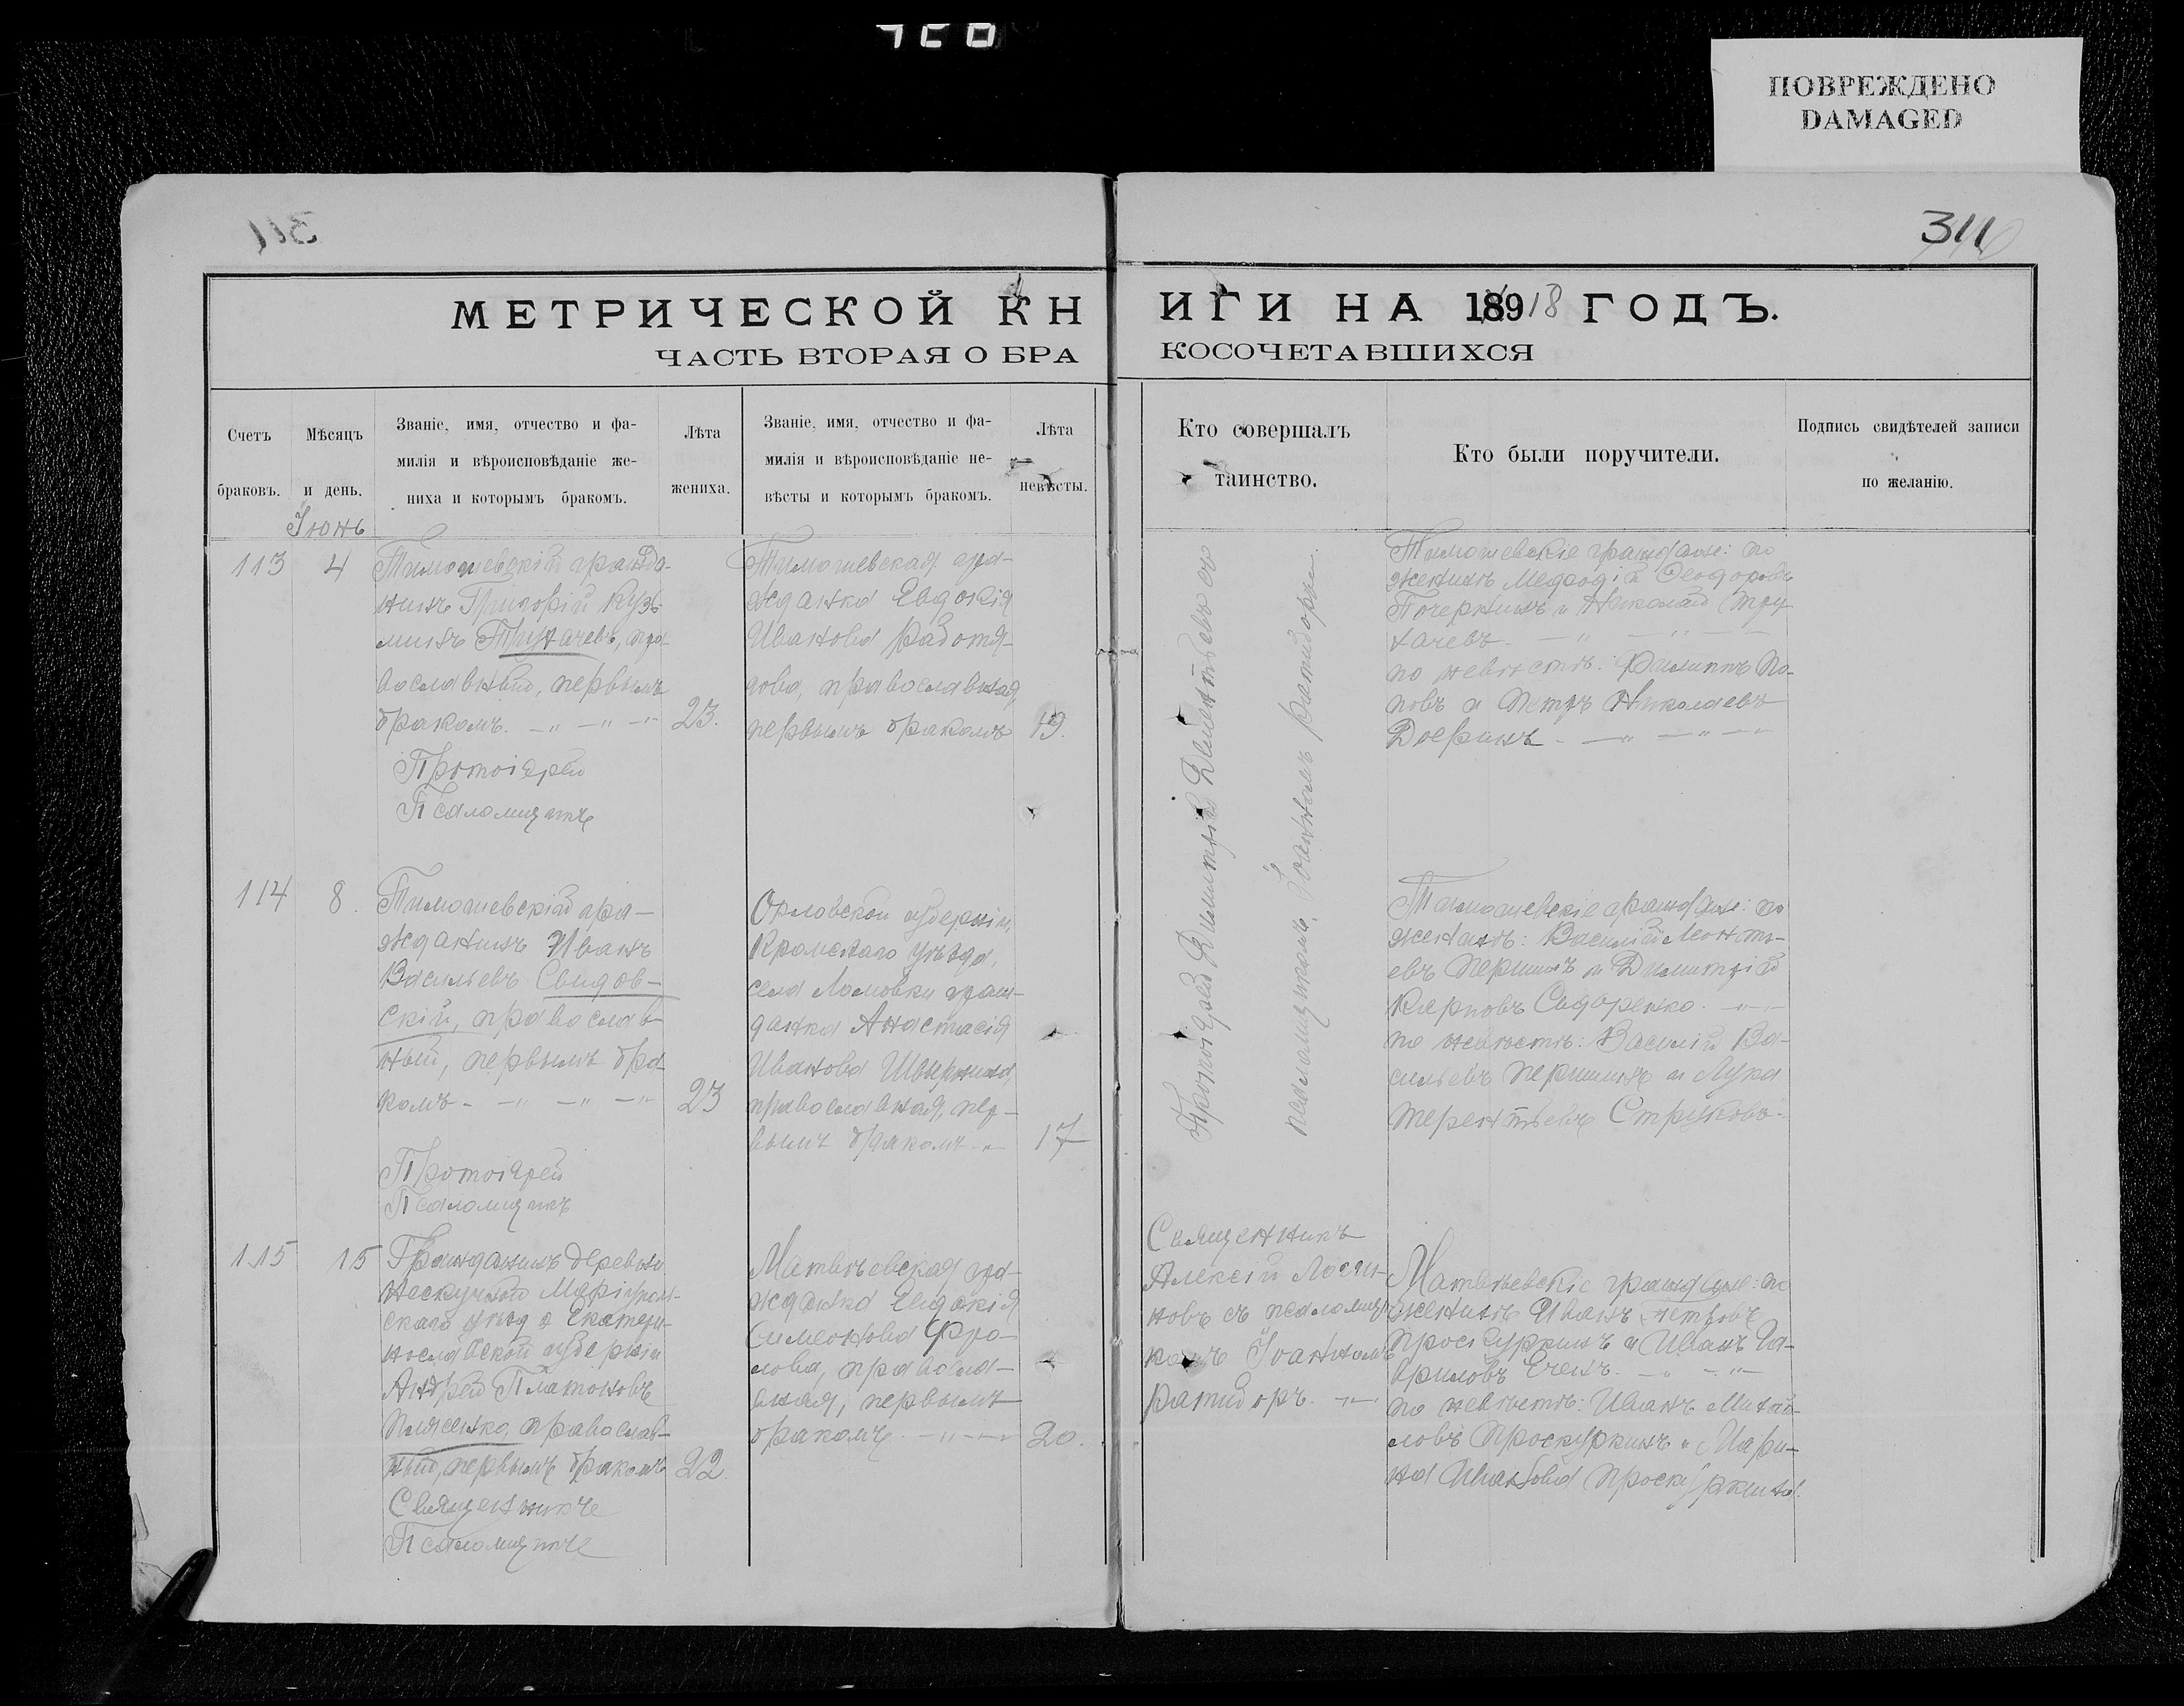 ПОВРЕЖДЕНО
DAMAGED
311
МЕТРИЧЕСКОЙ КНИГИ НА 18918 ГОДЪ.
ЧАСТЬ ВТОРАЯ О БРАКОСОЧЕТАВШИХСЯ
Счетъ
браковъ.
Мѣсяцъ
и день.
Званіе, имя, отчество и фа-
милія и вѣроисповѣданіе же-
ниха и которымъ бракомъ.
Лѣта
жениха.
Званіе, имя, отчество и фа-
милія и вѣроисповѣданіе не-
вѣсты и которымъ бракомъ.
Лѣта
невѣсты.
Кто совершалъ
таинство.
Кто были поручители.
Подпись свидѣтелей записи
по желанію.
Іюнь
113
4
Тимошевскій гражда-
нинъ Григорій Кузь-
минъ пра-
вославный, первымъ
бракомъ.
23.
Протоіерей
Псаломщикъ
Тимошевская гра-
жданка Евдокія
Иванова
православная,
первымъ бракомъ
19.
Протоіерей Димитрій Дементьевъ съ
псаломщикомъ Іоанномъ Ратидоръ
Тимошевскіе граждане: по
женихѣ Меѳодій Ѳеодоровъ
и Николай
по невѣстѣ: Филиппъ По-
повъ и Петръ Николаевъ
114
8.
Тимошевскій гра-
жданинъ Иванъ
Васильевъ Свидов-
скій, православ-
ный, первымъ бра-
комъ
23
Протоіерей
Псаломщикъ
Орловской губерніи,
Кромскаго уѣзда,
села Ломовки граж-
данка Анастасія
Иванова
православная, пер-
вымъ бракомъ
17
Тимошевскіе граждане: по
женихѣ: Василій
евъ Першинъ и Димитрій
Карповъ Сидоренко.
по невѣстѣ: Василій Ва-
сильевъ Першинъ и Лука
Терентьевъ Струковъ.
115
15
Гражданинъ деревни
Нескучной Маріуполь-
скаго уѣзда Екатери-
нославской губерніи
Андрей Платоновъ
православ-
ный, первымъ бракомъ
22.
Священникъ
Псаломщикъ
Матвѣевская гра-
жданка Евдокія
Симеонова Фро-
лова, правосла-
вная, первымъ
бракомъ.
20.
Священникъ
Алексій Логви-
новъ съ псаломщи-
комъ Іоанномъ
Ратидоръ.
Матвѣевскіе граждане: по
женихѣ Иванъ Петровъ
Проскуркинъ и Иванъ Га-
вриловъ
по невѣстѣ: Иванъ Михай-
ловъ Проскуркинъ и Мари-
на Иванова Проскуркина.